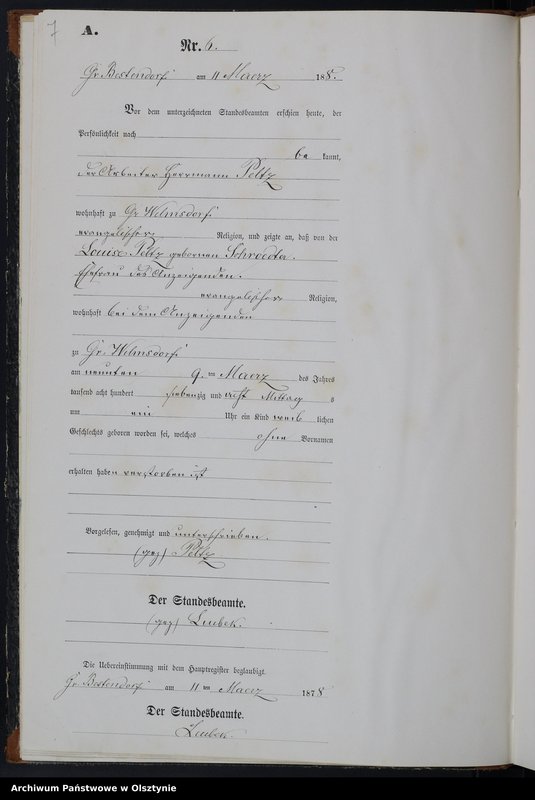 7
A.
Nr. 6.
Gr. Bestendorf am 11 Maerz 188.
Vor dem unterzeichneten Standesbeamten erschien heute, der
Persönlichkeit nach
be kannt,
der Arbeiter Herrmann Peltz
wohnhaft zu Gr. Wilmsdorf
evangelischer Religion, und zeigte an, daß von der
Louise Peltz gebornen Schroedter.
Ehefrau des Anzeigenden.
evangelischer Religion,
wohnhaft bei dem Anzeigenden
zu Gr. Wilmsdorf
am neunten 9. ten Maerz des Jahres
tausend acht hundert siebenzig und acht Mittag s
um ein Uhr ein Kind weib lichen
Geschlechts geboren worden sei, welches ohne Vornamen
erhalten haben verstorben ist
Vorgelesen, genehmigt und unterschrieben.
(gez) Peltz
Der Standesbeamte.
(gez) Lubek.
Die Uebereinstimmung mit dem Hauptregister beglaubigt.
Gr. Bestendorf am 11 ten Maerz 1878
Der Standesbeamte.
Lubek.
Archiwum Państwowe w Olsztynie